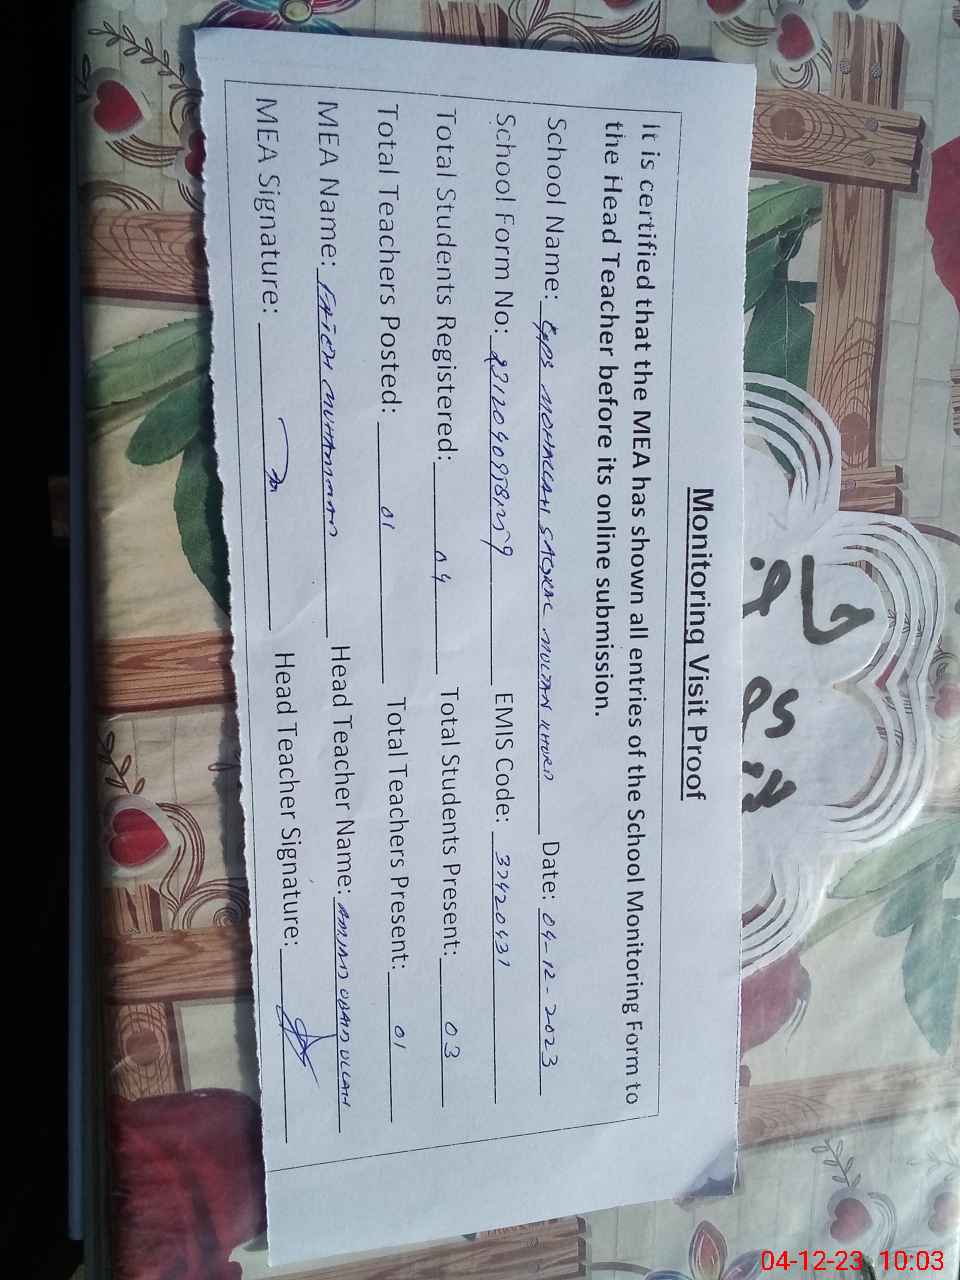 Monitoring Visit Proof
It is certified that the MEA has shown all entries of the School Monitoring Form to
the Head Teacher before its online submission.
School Name: GPS MOHALLAH SAGRAL MULTAN KHURD Date: 04-12-2023
School Form No: EMIS Code: 37420431
Total Students Registered: 04 Total Students Present: 03
Total Teachers Posted: 01 Total Teachers Present: 01
MEA Name: FATEH MUHAMMAD Head Teacher Name: AMJAD OBAID ULLAH
MEA Signature: Head Teacher Signature:
04-12-23 10:03